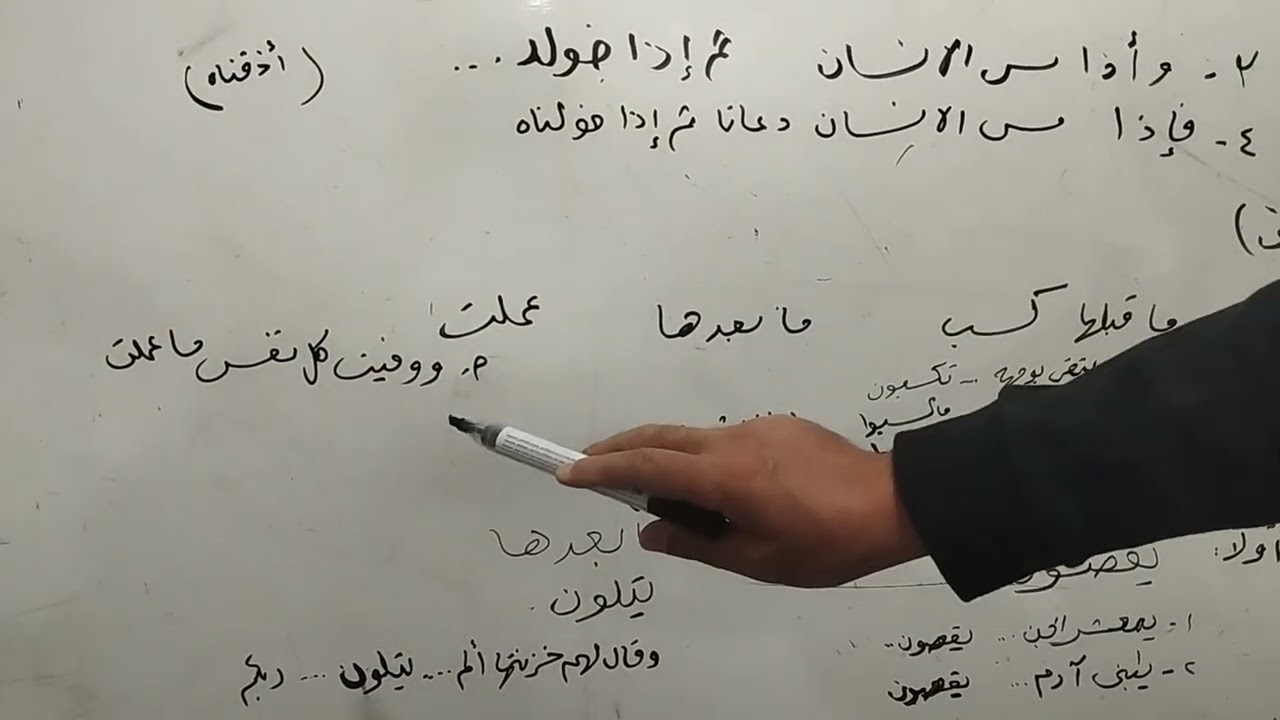 ٢ - وأذا مس الانسان ثم إذا خوله ... (أذقناه)
٤ - فإذا مس الانسان دعانا ثم إذا خولناه
ما قبلها كسب ما بعدها عملت
بوجهه ... تكسبون
ووفيت كل نفس ما عملت
ما كسبوا
أولا: يقصون
بعدها
يتلون
١ - يمعشر الجن ... يقصون ..
٢ - يبني آدم ... يقصون
وقال لهم خزنتها ألم .... يتلون ... ربكم